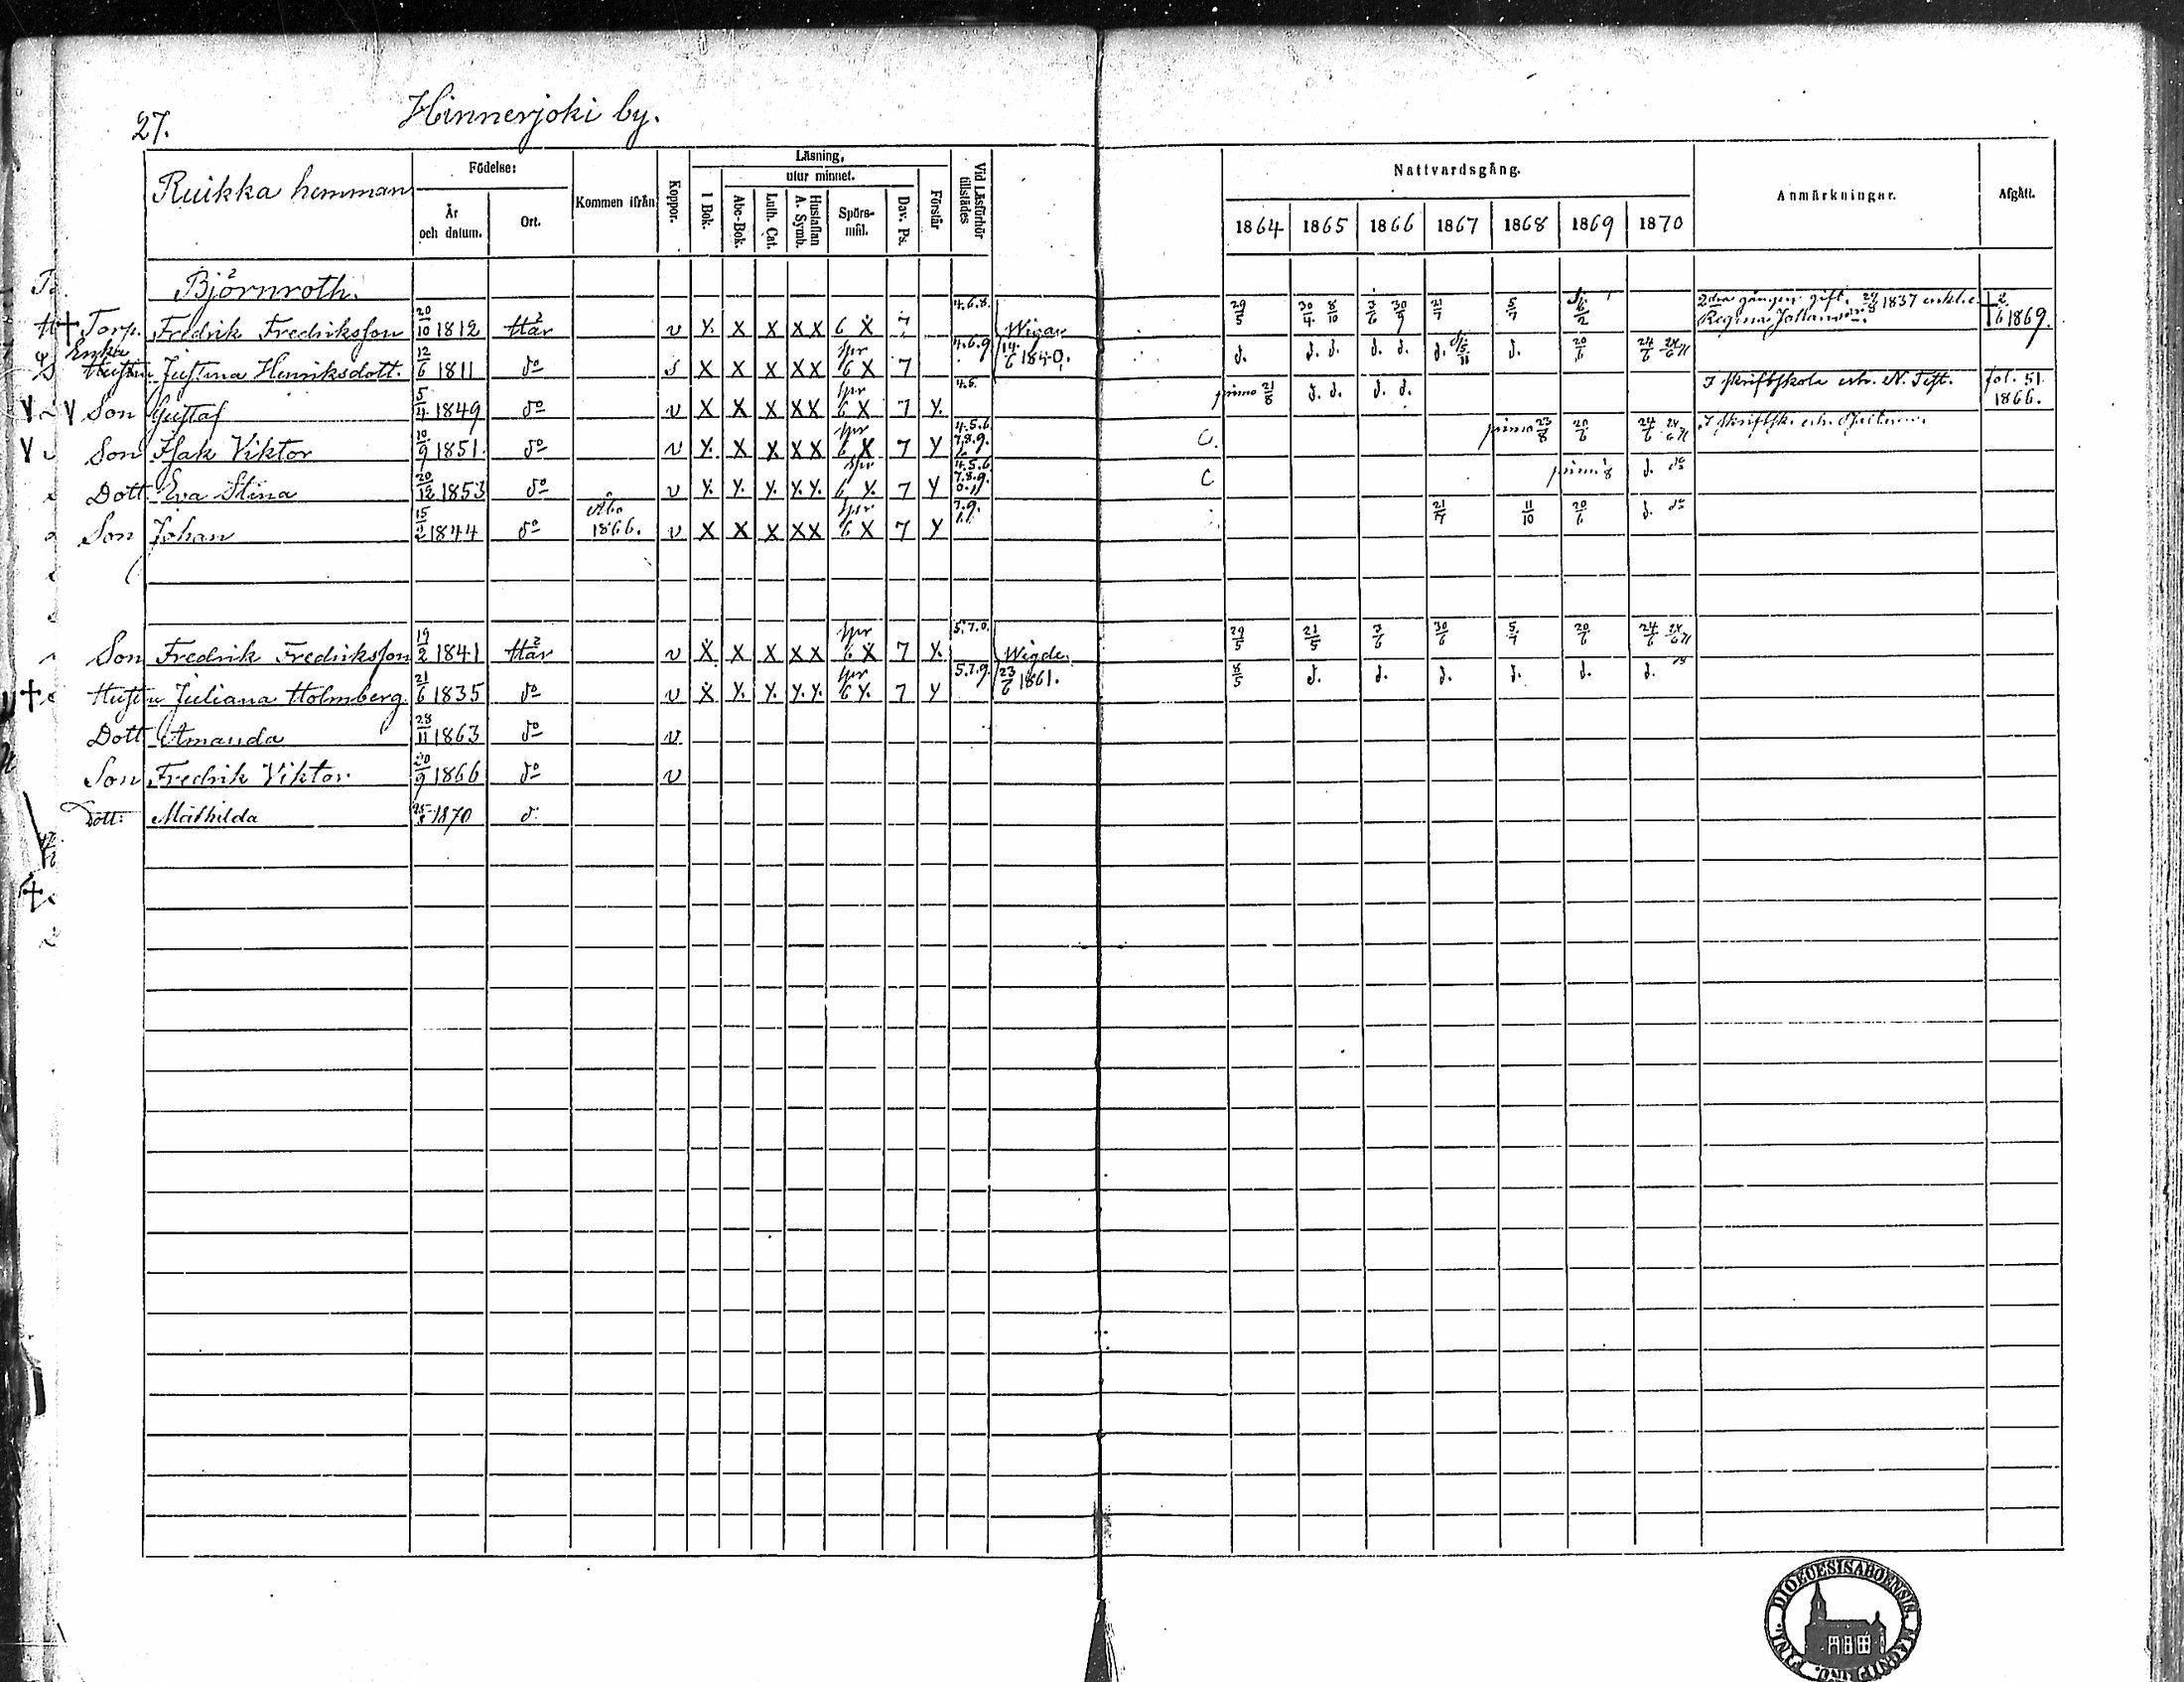 27. Hinnerjoki by.
Ruikka hemman Födelse: År och datum. Ort. Kommen ifrån Koppor. Läsning, I Bok. utur minnet. Abc-Bok. Luth. Cat. Hustaflan A. Symb. Spörs-mål. Dav. Ps. Förstår Vid Läsförhör tillstädes Nattvardsgång. 1864 1865 1866 1867 1868 1869 1870 Anmärkningar. Afgått.
Björnroth.
† Torp. Fredrik Fredriksson 20/10 1812 Här v Y. X X X X 6 X 7 4.6.8. 29/5 30/4 8/10 3/6 30/9 21/7 5/7 2dra gången gift. 1837 † 2/6 1869.
Enka Hustru Justina Henriksdott. 12/6 1811 do s X X X X X spr 6 X 7 4.6.9 14/6 1840. d. d. d. d. d. d. 15/11 d. 20/6 24/6
Son Gustaf 5/4 1849 do v X X X X X spr 6 X 7 Y. 4.5. primo 21/8 d. d. d. d. I skriftskola erh. N. Test. fol. 51. 1866.
Son Isak Viktor 20/9 1851. do v Y. X X X X spr 6 X 7 Y 4.5.6 7.8.9. C. primo 23/8 20/6 24/6
Dott Eva Stina 20/12 1853 do v Y. Y. Y. Y. Y. spr 6 Y. 7 Y 4.5.6 7.8.9. C d. do
Son Johan 15/2 1844 do Åbo 1866. v X X X X X spr 6 X 7 Y 7.9. 21/7 11/10 20/6 d. do
Son Fredrik Fredriksson 19/2 1841 Här v X X X X X spr 6 X 7 Y. 5.7.0. Wigde 29/5 21/5 3/6 30/6 5/7 20/6 24/6
Hustru Juliana Holmberg. 21/6 1835 do v X Y. Y. Y. Y. spr 6 Y. 7 Y 5.7.9. 23/6 1861. 8/5 d. d. d. d. d. d.
Dott Amanda 28/11 1863 do v
Son Fredrik Viktor. 20/9 1866 do v
Dott: Mathilda 1870 d: